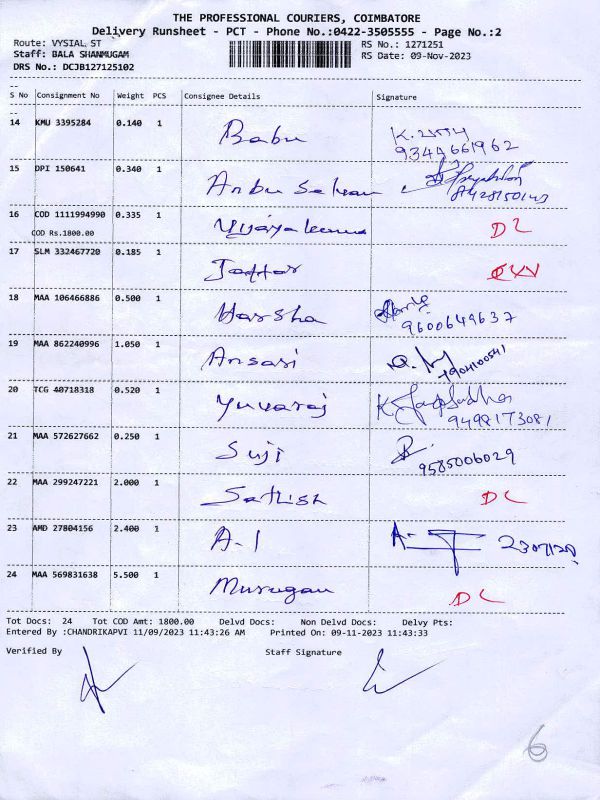 THE PROFESSIONAL COURIERS, COIMBATORE
Delivery Runsheet - PCT - Phone No.:0422-3505555 - Page No.:2
Route: VYSIAL ST RS No.: 1271251
Staff: BALA SHANMUGAM RS Date: 09-Nov-2023
DRS No.: DCJB127125102
S No Consignment No Weight PCS Consignee Details Signature
14 KMU 3395284 0.140 1 Babu
9344661962
15 DPI 150641 0.340 1 Anbu Selvan
8428150143
16 COD 1111994990 0.335 1 Vijayakumar
COD Rs.1800.00
17 SLM 332467720 0.185 1
18 MAA 106466886 0.500 1 Harsha
9600649637
19 MAA 862240996 1.050 1 Ansari
7904100541
20 TCG 40718318 0.520 1 Yuvaraj
9498173081
21 MAA 572627662 0.250 1 Suji
9585006029
22 MAA 299247221 2.000 1 Sathish DL
23 AMD 27804156 2.400 1 A-1
24 MAA 569831638 5.500 1 Murugan DL
Tot Docs: 24 Tot COD Amt: 1800.00 Delvd Docs: Non Delvd Docs: Delvy Pts:
Entered By :CHANDRIKAPVI 11/09/2023 11:43:26 AM Printed On: 09-11-2023 11:43:33
Verified By Staff Signature
6